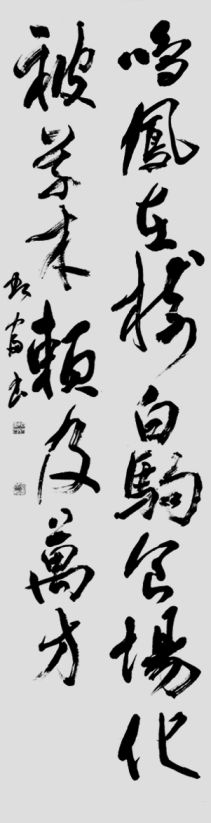 鳴鳳在樹白駒食場化
被草木賴及萬方